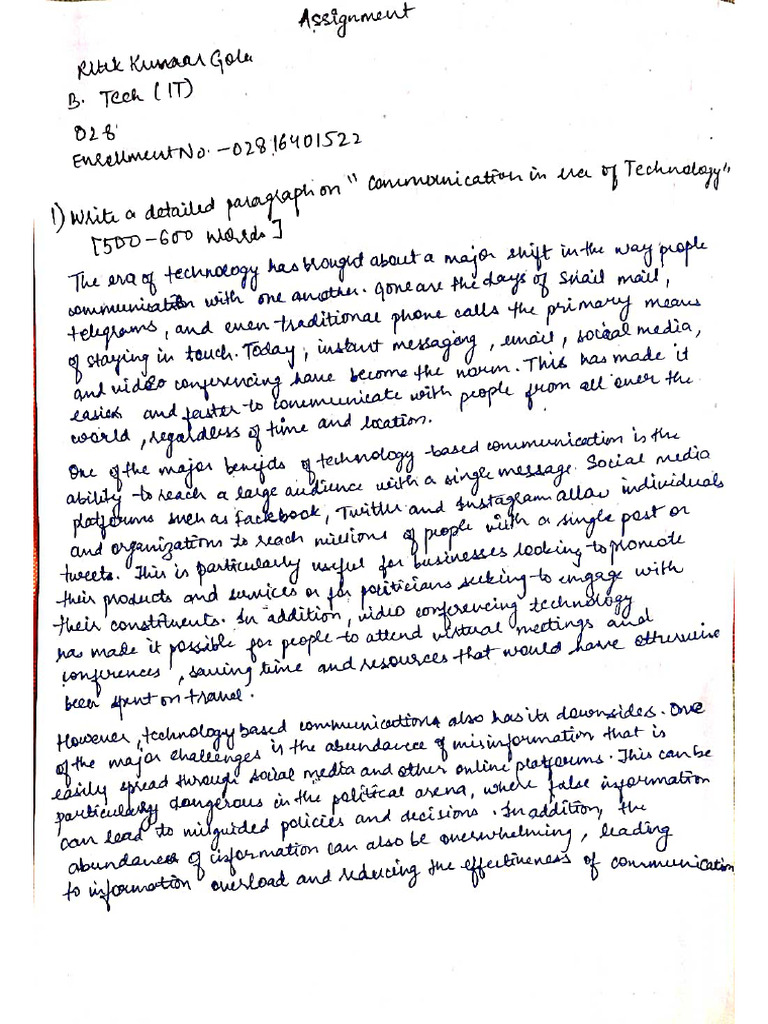 Assignment
Ritik Kumar Gola
B. Tech (IT)
028
Enrollment No. -02816401522
1) Write a detailed paragraph on "Communication in era of Technology"
[500-600 words]
The era of technology has brought about a major shift in the way people
communication with one another. Gone are the days of snail mail,
telegrams, and even traditional phone calls the primary means
of staying in touch. Today, instant messaging, email, social media,
and video conferencing have become the norm. This has made it
easier and faster to communicate with people from all over the
world, regardless of time and location.
One of the major benifits of technology-based communication is the
ability to reach a large audience with a single message. Social media
platforms such as Fackbook, Twitter and Instagram allow individuals
and organizations to reach millions of people with a single post or
tweets. This is particularly useful for businesses looking to promote
their products and services or for politicians seeking to engage with
their constituents. In addition, video conferencing technology
has made it possible for people to attend virtual meetings and
conferences, saving time and resources that would have otherwise
been spent on travel.
However, technology based communications also has its downsides. One
of the major challenges is the abundance of misinformation that is
easily spread through social media and other online platforms. This can be
particularly dangerous in the political arena, where false information
can lead to misguided policies and decisions. In addition, the
abundance of information can also be overwhelming, leading
to information overload and reducing the effectiveness of communication